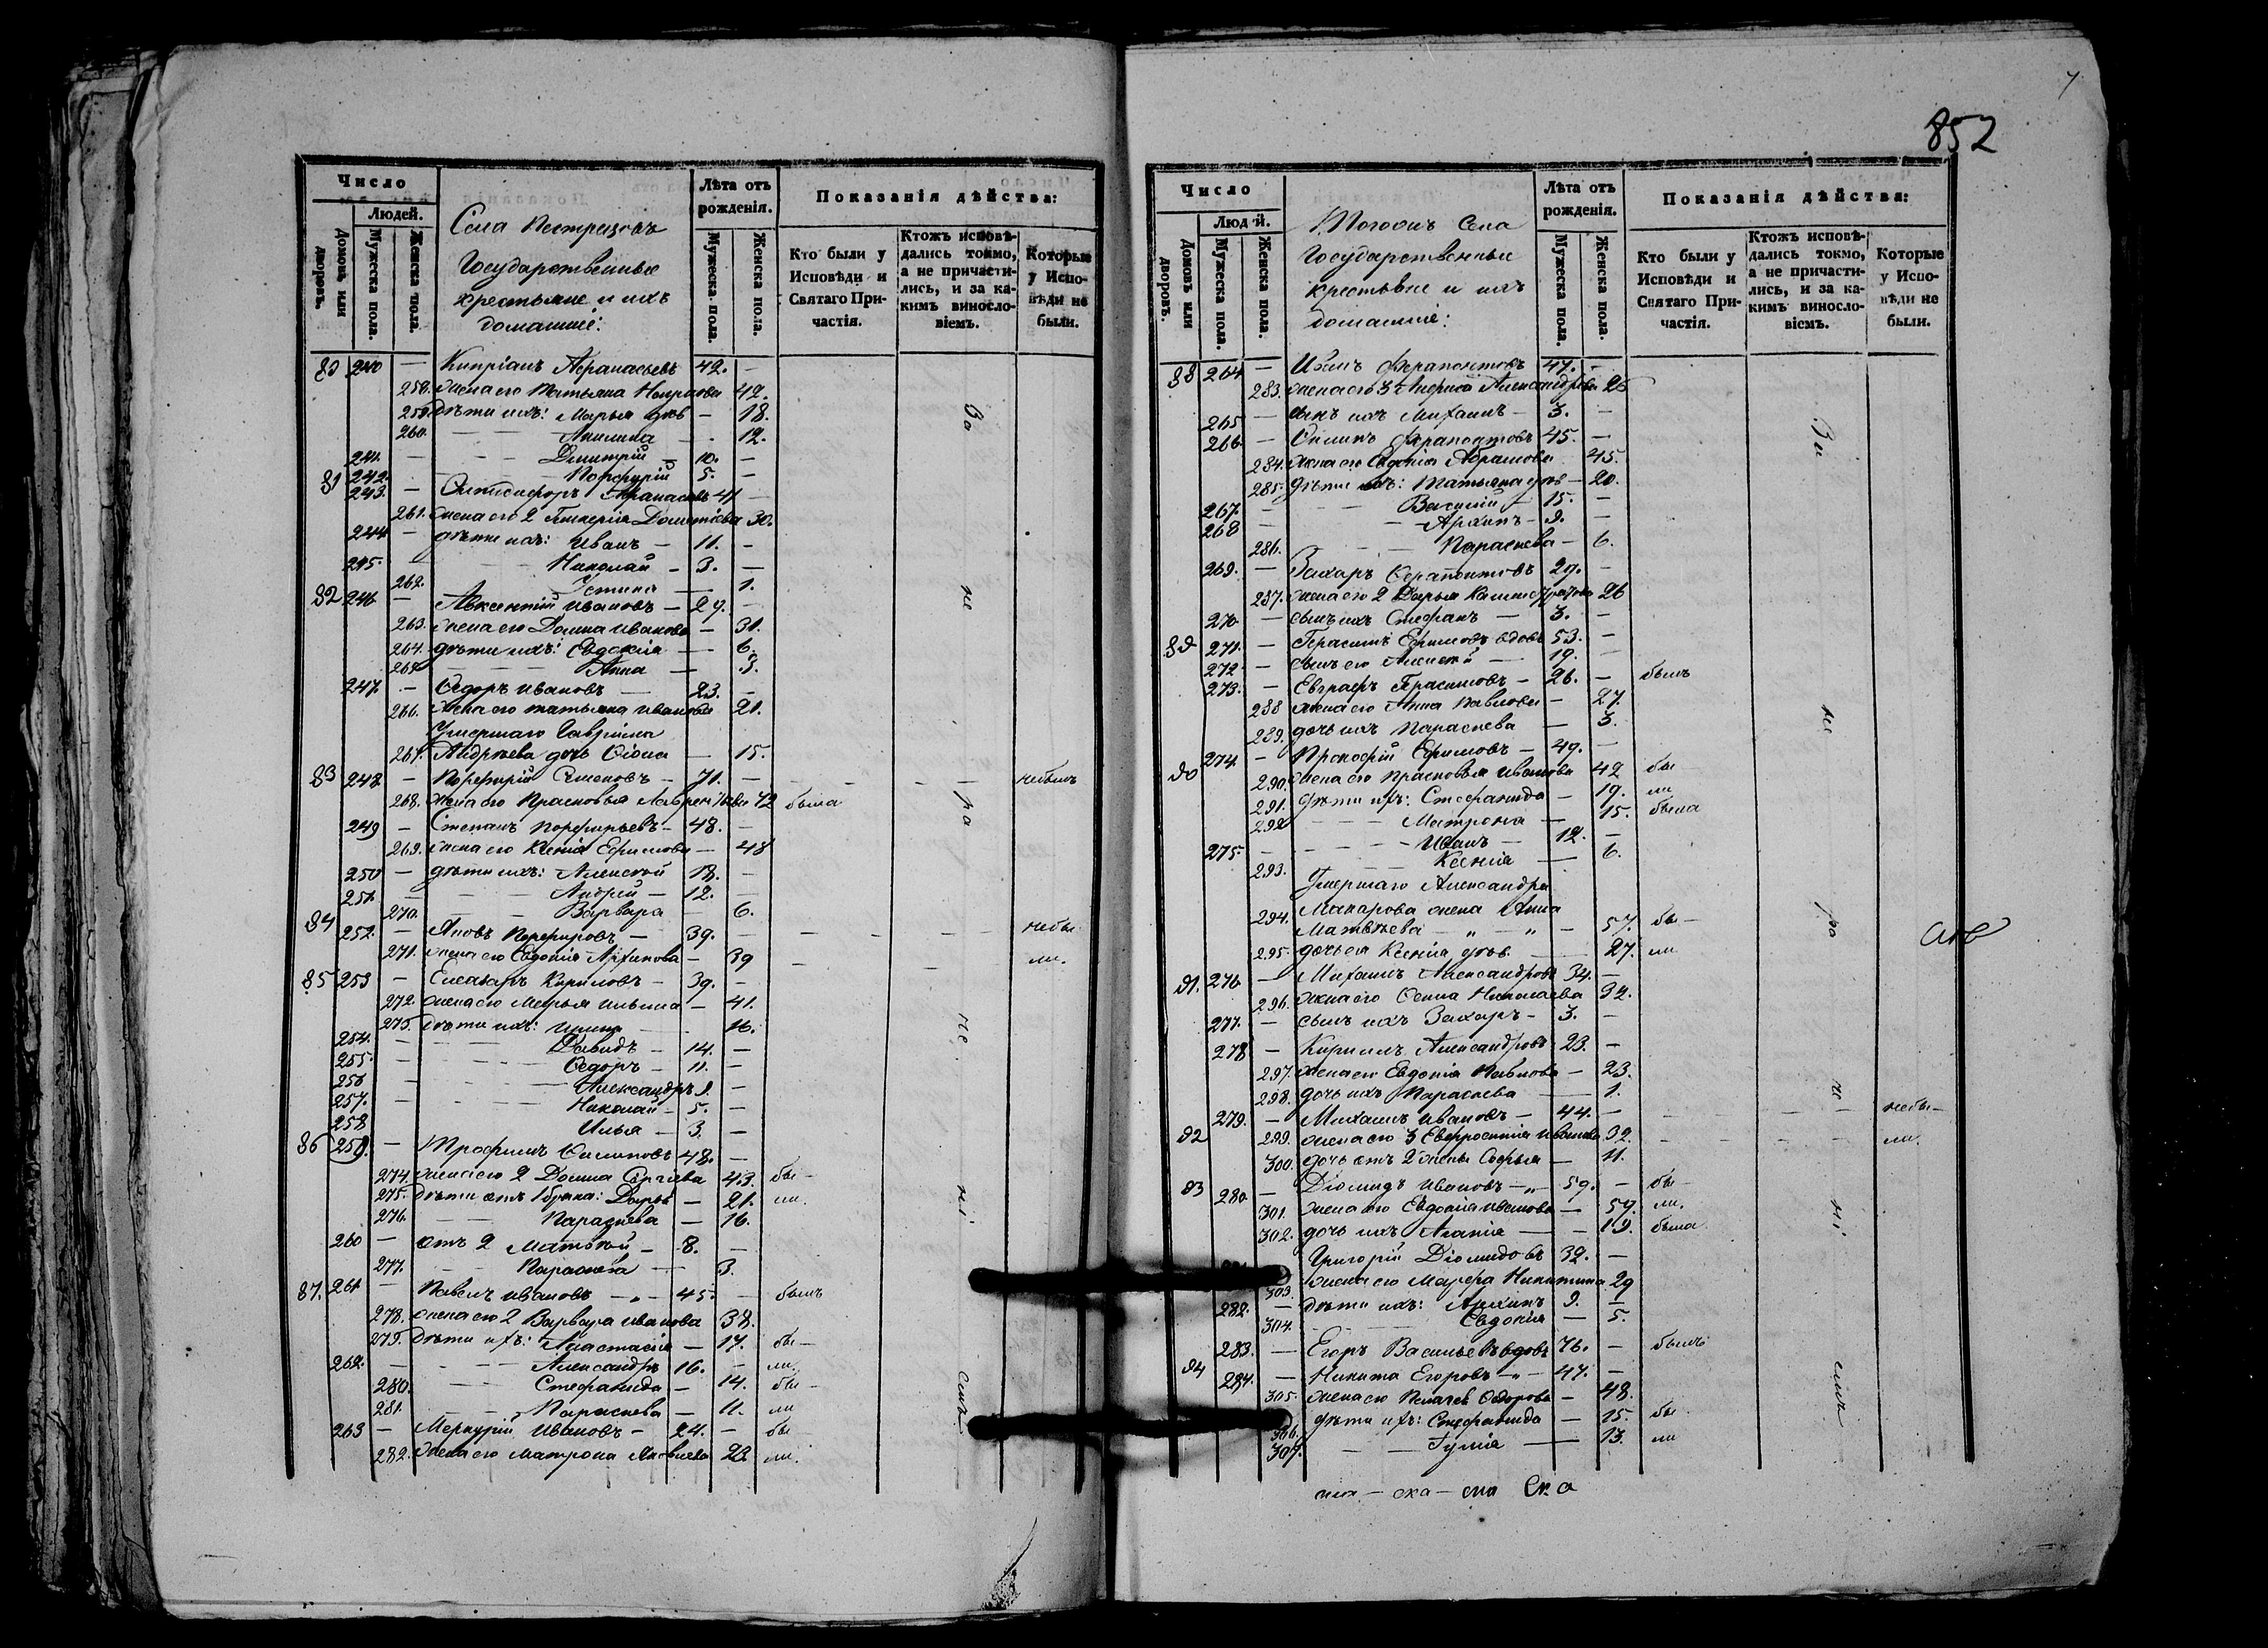 852
Число
Людей.
Домовъ или дворовъ.
Мужеска пола.
Женска пола.
Села
Государственные
крестьяне и ихъ
домашніе:
Лѣта отъ
рожденія.
Мужеска пола.
Женска пола.
Показанія дѣйства:
Кто были у
Исповѣди и
Святаго При-
частія.
Ктожъ исповѣ-
дались токмо,
а не причасти-
лись, и за ка-
кимъ виносло-
віемъ.
Которые
у Испо-
вѣди не
были.
240 — Кипріанъ Аѳанасьевъ 42. —
258. жена его Татьяна 42.
259. дѣти ихъ: Марья дѣв — 18.
260. Акилина — 12.
241. — Димитрій — 10. —
242. Порфурій 5. —
81 243. — Аѳанасьевъ 41 —
261. жена его 2 30.
244 — дѣти ихъ: Иванъ — 11. —
245. Николай — 3. —
262. Устина — 1.
82 246 — Авксентій Ивановъ — 29. —
263. жена его Домна Иванова — 31.
264. дѣти ихъ: Евдокія — 6.
Анна — 3.
247. — Ѳедоръ Ивановъ — 23. —
266. жена его Татьяна Иванова 21.
Умершаго Гавріила
267. Андреева дочь — 15.
83 248 — Порфирій Симеоновъ — 71. — небылъ
268. жена его Прасковья Лаврентьева 72 была
249 — Степанъ Порфирьевъ — 48. —
269. жена его Ксенія Ефимова — 48
250 — дѣти ихъ: Алексѣй 18. —
251. — Андрей — 12. —
270. Варвара — 6.
84 252. — Яковъ Порфировъ — 39. — небы
271. жена его Евдокія Архипова — 39 ли.
85 253 — Елеазаръ Кириловъ — 39. —
272. жена его Марья Ильина — 41.
273. дѣти ихъ: Ирина — 16.
254. — Давидъ — 14. —
255. — Ѳедоръ — 11. —
256 — Александръ 9. —
257. — Николай — 5. —
258 Илья — 3. —
86 259. — Трофимъ 48. —
274. жена его 2 Домна Сергіева 43. бы —
275. дѣти отъ 1 брака: Дарья — 21. ли.
276. Параскева — 16.
260 — отъ 2 Матвѣй — 8. —
277. Параскева — 3.
87. 261 — Павелъ Ивановъ — 45. — былъ
278. жена его 2 Варвара Иванова 38.
279. дѣти ихъ: Анастасія — 17. бы —
262. — Александръ 16. — ли.
280. Стефанида — 14. бы —
281. Параскева — 11. ли
263 — Меркурій Ивановъ — 24. — бы
282. жена его Матрона Яковлева 23 ли.
Число
Людей.
Домовъ или дворовъ.
Мужеска пола.
Женска пола.
Села
Государственные
крестьяне и ихъ
домашніе:
Лѣта отъ
рожденія.
Мужеска пола.
Женска пола.
Показанія дѣйства:
Кто были у
Исповѣди и
Святаго При-
частія.
Ктожъ исповѣ-
дались токмо,
а не причасти-
лись, и за ка-
кимъ виносло-
віемъ.
Которые
у Испо-
вѣди не
были.
88 264 — Иванъ Ферапонтовъ 47. —
283. жена его 3 Александрова 25
265 — сынъ ихъ Михаилъ — 3. —
266 — Филипъ Ферапонтовъ 45. —
284. жена его Евдокія Абрамова — 45.
285. дѣти ихъ: Татьяна дѣв — 20.
267. — Василій — 15. —
268 — Архипъ — 9. —
286. Параскева — 6.
269. — Захаръ Ферапонтовъ 29. —
287. жена его 2 Дарья Калистратова 26
270 — сынъ ихъ Стефанъ — 3. —
89 271. — Герасимъ Ефимовъ вдовъ 53. —
272. — сынъ его Алексѣй — 19. —
273. — Евграфъ Герасимовъ — 26. — былъ
288 жена его Анна Павлова — 27.
289. дочь ихъ Параскева — 3.
90 274. — Прокофій Ефимовъ — 49. —
290. жена его Прасковья Иванова 42 бы
291. дѣти ихъ: Стефанида — 19. ли
292 Матрона — 15. была
275 — Иванъ — 12. —
293. Ксенія — 6.
Умершаго Александра
294. Макарова жена Анна
Матвѣева — „ — „ — 57. бы —
295. дочь ея Ксенія дѣв. — 27. ли
91. 276 — Михаилъ Александровъ 34. —
296. жена его Николаева 34.
277. — сынъ ихъ Захаръ — 3. —
278 — Кирилъ Александровъ 23. —
297. жена его Евдокія Павлова — 23.
298. дочь ихъ Параскева — 1.
92 279. — Михаилъ Ивановъ — 44. — небы —
299. жена его 3 Евфросинія Иванова 32. ли.
300. дочь отъ 2 жены Софья — 11.
93 280. — Діомидъ Ивановъ — „ — 59. — бы —
301. жена его Евдокія Иванова — 59. ли.
302. дочь ихъ Агапія — 19. была
Григорій Діомидовъ 32. —
303. жена его Марфа Никитина 29
282. — дѣти ихъ: Архипъ 9. —
304. Евдокія — 5.
94 283. — Егоръ Васильевъ вдовъ 76. — былъ
284. — Никита Егоровъ — „ — 47. —
305. жена его Ѳедорова — 48.
306. дѣти ихъ: Стефанида — 15. бы
307. — Гулія — 13. ли